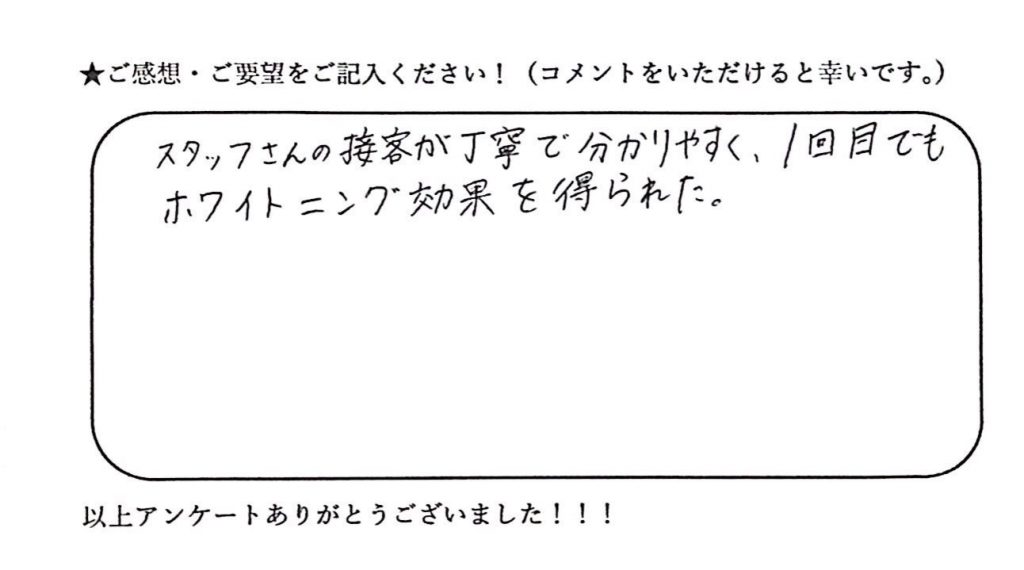 ★ご感想・ご要望をご記入ください！（コメントをいただけると幸いです。）
スタッフさんの接客が丁寧で分かりやすく、1回目でも
ホワイトニング効果を得られた。
以上アンケートありがとうございました！！！